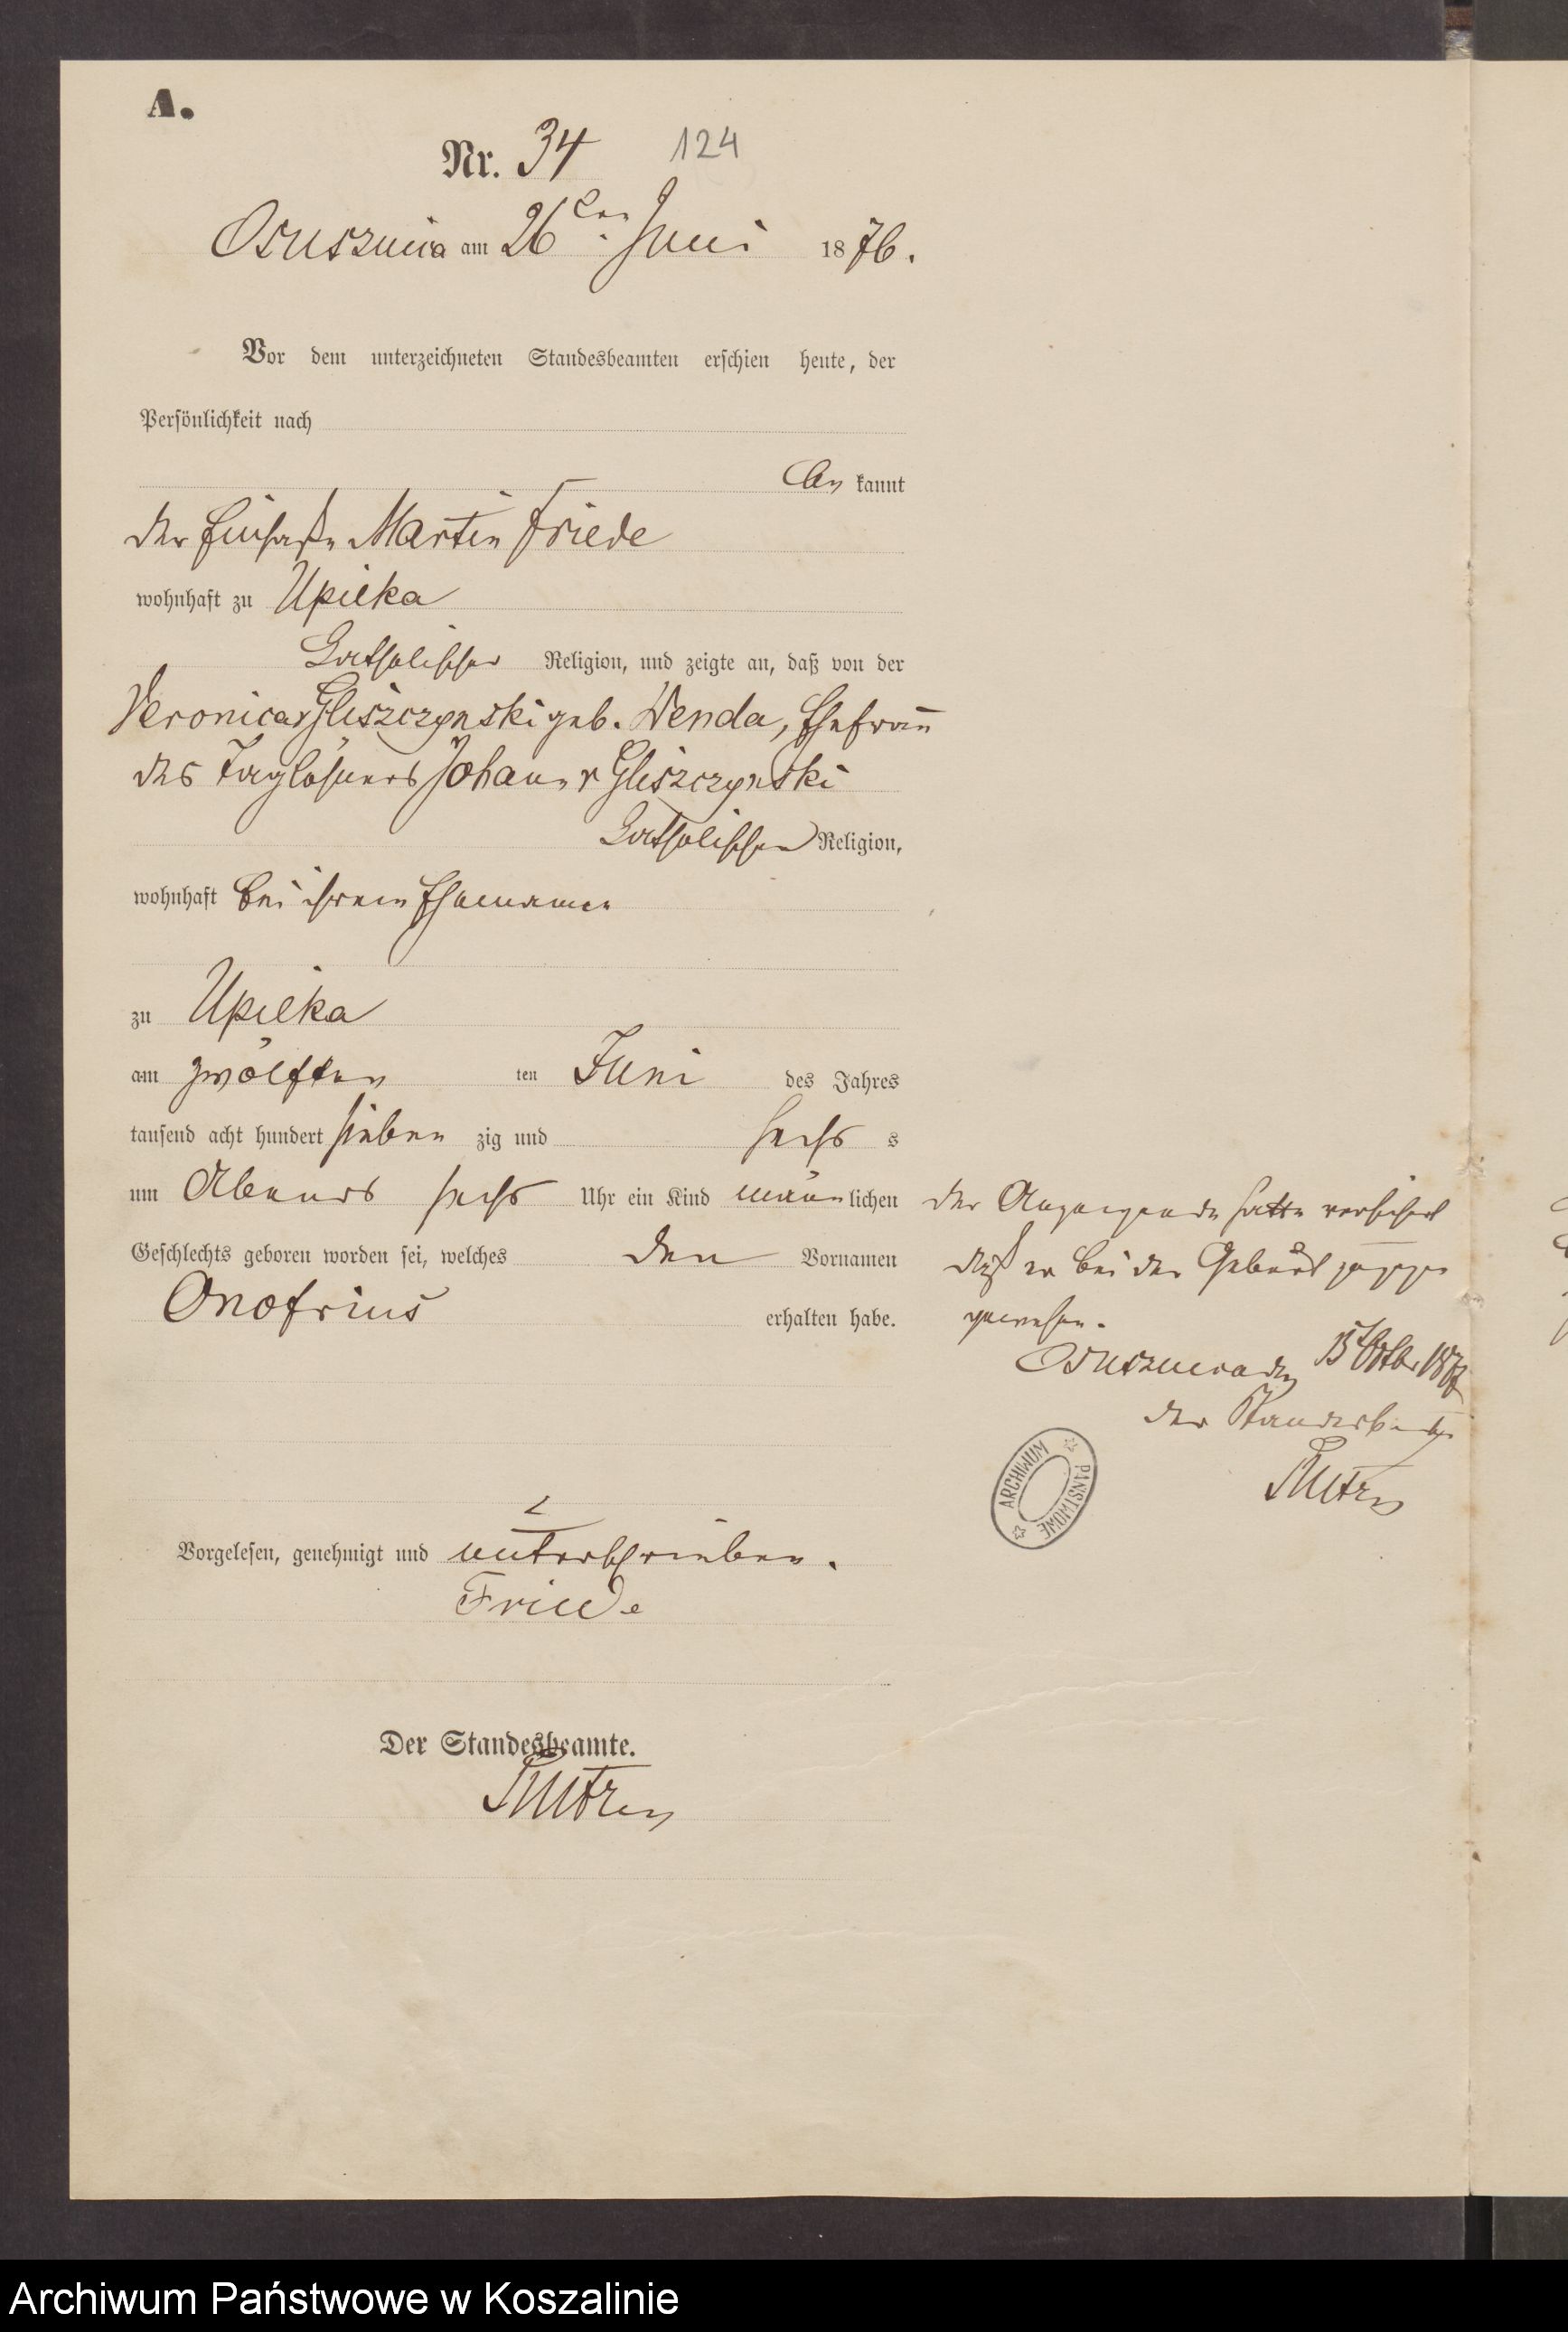 A.
Nr. 34 124
Osusznica am 26ten Juni 1876.
Vor dem unterzeichneten Standesbeamten erschien heute, der
Persönlichkeit nach
be kannt
der Einsasse Martin Friede
wohnhaft zu Upilka
katholischer Religion, und zeigte an, daß von der
Veronica v Gliszczynski geb. Wenda, Ehefrau
des Taglöhners Johann v Gliszczynski
katholischen Religion,
wohnhaft bei ihrem Ehemanne
zu Upilka
am zwölften ten Juni des Jahres
tausend acht hundert sieben zig und sechs s
um Abends sechs Uhr ein Kind männlichen
Geschlechts geboren worden sei, welches den Vornamen
Onofrius erhalten habe.
Der Anzeigende hatte versichert
daß er bei der Geburt zugegen
gewesen.
Osusznica den 15 Oktbr
der Standesbeamte
ARCHIWUM PAŃSTWOWE
Vorgelesen, genehmigt und unterschrieben.
Friede
Der Standesbeamte.
Archiwum Państwowe w Koszalinie